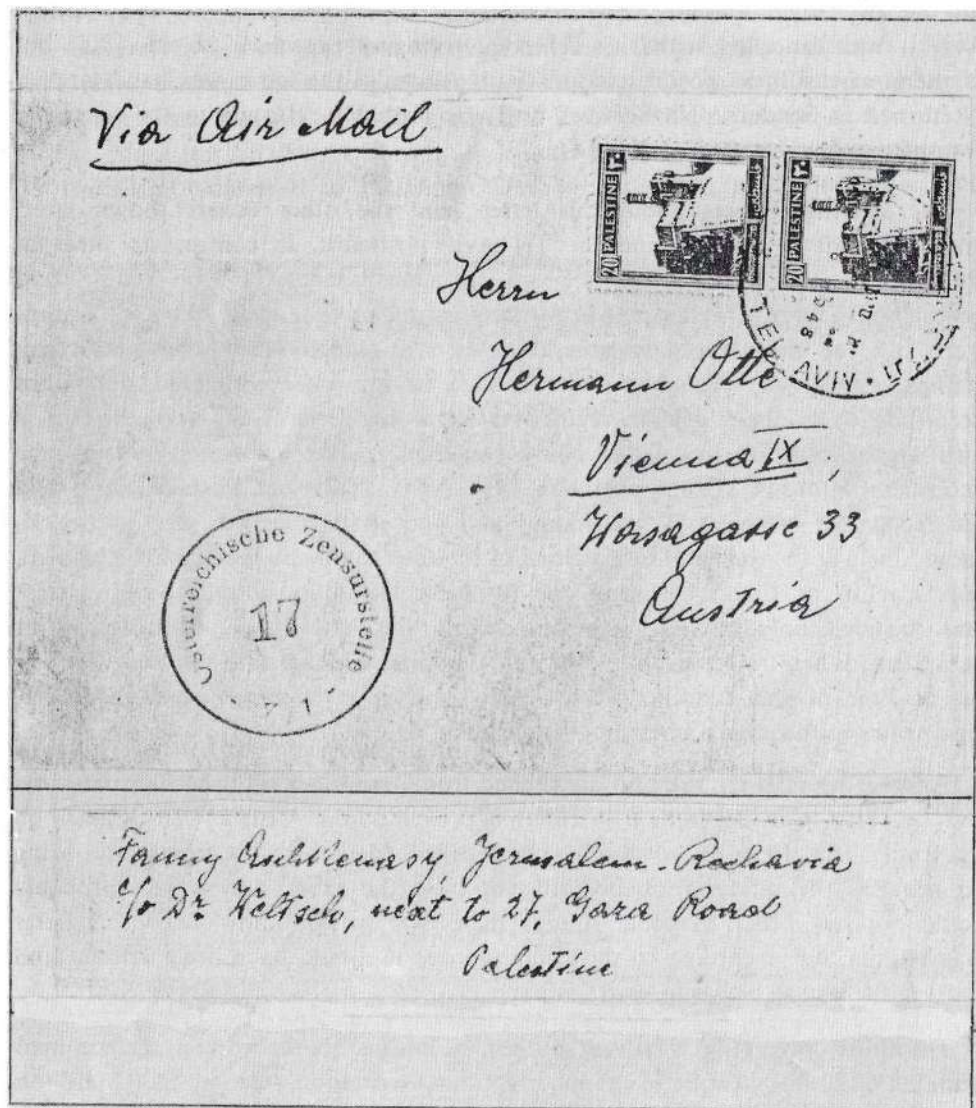 Via Air Mail
20 PALESTINE ٢٠
20 PALESTINE ٢٠
TEL AVIV
948
Herrn
Hermann Otte
Vienna IX,
Wasagasse 33
Austria
Österreichische Zensurstelle
17
Fanny Aschkenasy, Jerusalem-Rechavia
c/o Dr. Weltsch, next to 27, Gaza Road
Palestine